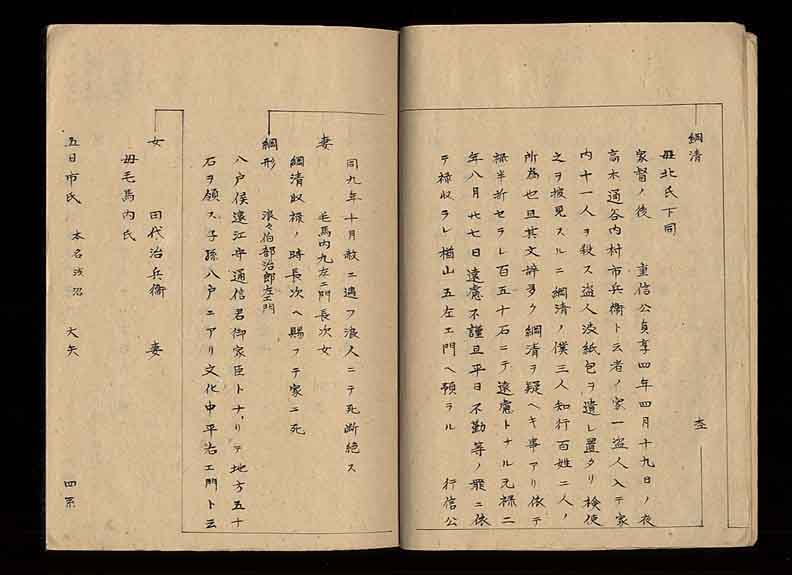 綱清
母北氏下同
家督ノ後 重信公貞享四年四月十九日ノ夜
高木通谷内村市兵衛ト云者ノ家ヘ盗人入テ家
内十一人ヲ殺ス盗人渋紙包ヲ遺レ置タリ検使
之ヲ披見スルニ綱清ノ僕三人知行百姓二人ノ
所為也且其文辞多ク綱清ヲ疑ヘキ事アリ依テ
禄半折セラレ百五十石ニテ遠慮トナル元禄二
年八月廿七日遠慮不謹且平日不勤等ノ罪ニ依
テ禄収ラレ楢山五左エ門ヘ預ラル 行信公
同九年十月赦ニ遇フ浪人ニテ死断絶ス
妻 毛馬内九左エ門長次女
綱清収禄ノ時長次ヘ賜フテ家ニ死
綱形 浪々伯部治郎左エ門
八戸侯遠江守通信君御家臣トナリテ地方五十
石ヲ領ス子孫八戸ニアリ文化中平右エ門ト云
女 田代治兵衛 妻
母毛馬内氏
五日市氏 本名浅沼 大矢 四系